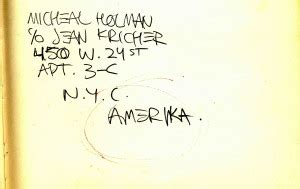 MICHEAL HOLMAN
℅ JEAN KRICHER
450 W. 24 ST
APT. 3-C
N.Y.C.
AMERIKA.